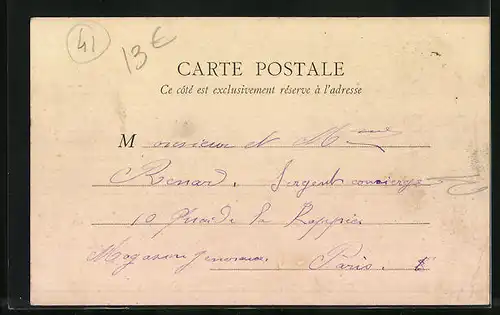 41
13 €
CARTE POSTALE
Ce côté est exclusivement réservé à l'adresse
Monsieur et Mme
Renard, Sergent concierge
10 Quai de la Rappée
Magasins Generaux
Paris.